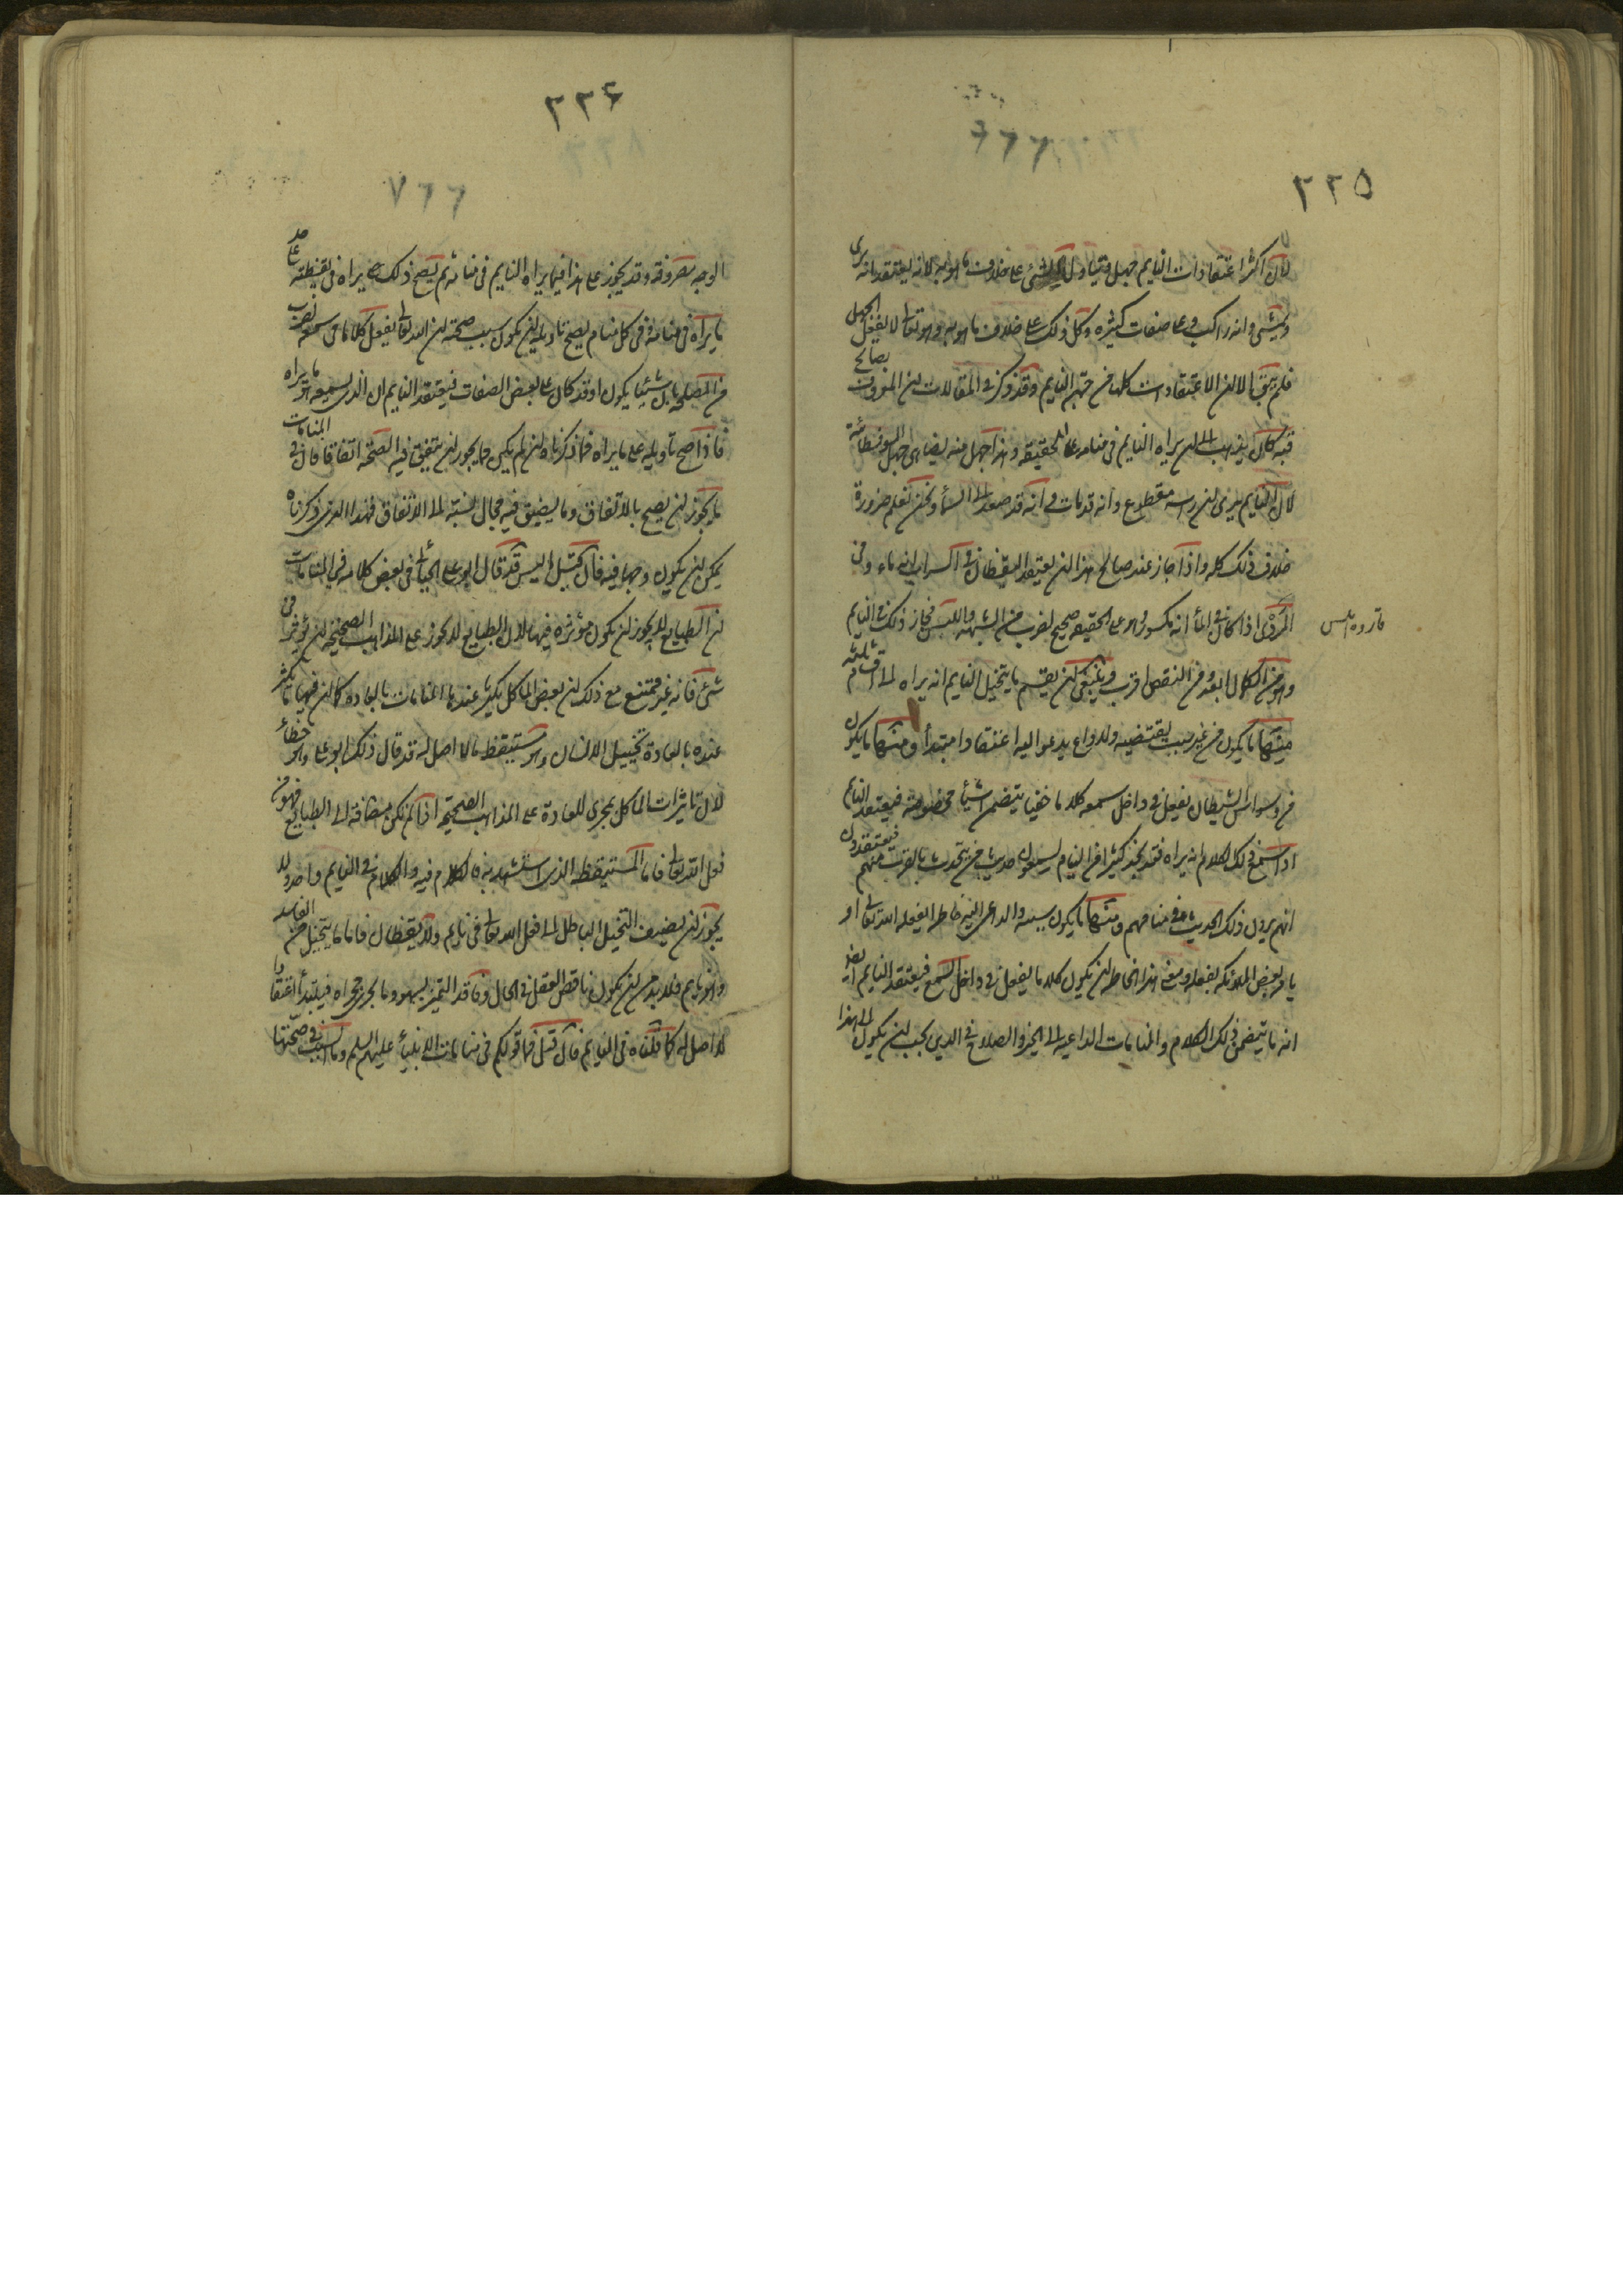 ٢٢٥
لان اكثر اعتقادات النايم جهل ويتناول الشئ على خلاف ما هو به لانه يعتقد انه يرى
ويمشى وانه راكب وعلى صفات كثيره وكل ذلك على خلاف ما هو به وهو تعالى لا يفعل الجهل
فلم يبق الا ان الاعتقادات كلها من جهة النايم وقد ذكر فى المقالات ان المعروف بصالح
قبه كان يذهب الى ان ما يراه النايم فى منامه على الحقيقه وهذا جهل منه يضاهى جهل السوفسطائية
لان النايم يرى ان راسه مقطوع وانه قد مات وانه قد صعد الى السماء ونحن نعلم ضرورة
خلاف ذلك كله واذا جاز عند صالح هذا ان يعتقد اليقظان فى السراب انه ماء وفى
المردى اذا كان فى الماء انه مكسور وهو على الحقيقه صحيح لضرب من الشبهه واللبس فجاز ذلك فى النايم
وهو من الكمال ابعد ومن النقص اقرب وينبغى ان يقسم ما يتخيل النايم انه يراه الى اقسام ثلثه
منها ما يكون من غير سبب يقتضيه ولا داع يدعو اليه اعتقادا مبتدأ ومنها ما يكون
من وسواس الشيطان يفعل فى داخل سمعه كلاما خفيا يتضمن اشياء مخصوصة فيعتقد النايم
اذا سمع ذلك الكلام انه يراه فقد نجد كثيرا من النيام يسمعون حديث من يتحدث بالقرب منهم فيعتقدون
انهم يرون ذلك الحديث فى منامهم ومنها ما يكون سببه والداعى اليه خاطرا يفعله الله تعالى او
يامر بعض الملائكه بفعله ومعنى هذا الخاطر ان يكون كلاما يفعل فى داخل السمع فيعتقد النايم ايضا
انه ما يتضمن ذلك الكلام والمنامات الداعيه الى الخير والصلاح فى الدين يجب ان يكون الى هذا
قاروه ابلس
٢٢۶
الوجه مصروفة وقد يجوز على هذا فيما يراه النايم فى منامه ثم يصح ذلك حتى يراه فى يقظته على حد
ما يراه فى منامه وفى كل منام يصح تاويله ان يكون سبب صحته ان الله تعالى يفعل كلاما فى سمعه لضرب
من المصلحه بان شيئا يكون او قد كان على بعض الصفات فيعتقد النايم ان الذى يسمعه هو ما يراه
فاذا صح تاويله على ما يراه فما ذكرناه ان لم يكن مما يجوز ان يتفق فيه الصحة اتفاقا فان فى المنامات
ما يجوز ان يصح بالاتفاق وما يضيق فيه مجال نسبته الى الاتفاق فهذا الذى ذكرناه
يمكن ان يكون وجها فيه فان قيل اليس قد قال ابو على الجبائى فى بعض كلامه فى المنامات
ان الطبايع لا يجوز ان تكون مؤثره فيها لان الطبايع لا يجوز على المذاهب الصحيحه ان تؤثر فى
شئ فانه غير ممتنع مع ذلك ان بعض الماكل يكثر عندها المنامات بالعاده كما ان فيها ما يكثر
عنده بالعادة تخييل الانسان وهو مستيقظ ما لا اصل له قد قال ذلك ابو على وهو خطأ
لان تاثيرات الماكل بمجرى العادة على المذاهب الصحيحه اذا لم تكن مضافة الى الطبايع فهو من
فعل الله تعالى فاما المستيقظ الذى استشهد به فالكلام فيه والكلام فى النايم واحد ولا
يجوز ان يضيف التخيل الباطل الى فعل الله تعالى فى نايم ولا يقظان فاما ما يتخيل من الفاسد
وهو نايم فلا بد من ان يكون ناقص العقل فى الحال وفاقد التمييز بسهو وما يجرى مجراه فيبتدأ اعتقادا
لا اصل له كما قلناه فى النايم فان قيل فما قولكم فى منامات الانبياء عليهم السلم وما السبب فى صحتها